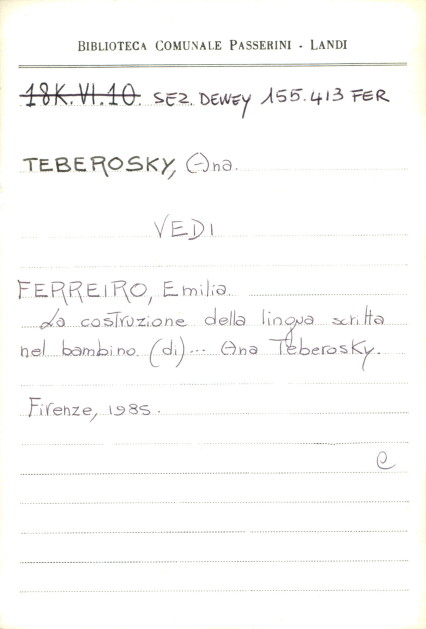 BIBLIOTECA COMUNALE PASSERINI - LANDI
18K.VI.10. SEZ. DEWEY 155.413 FER
TEBEROSKY, Ana.
VEDI
FERREIRO, Emilia.
La costruzione della lingua scritta
nel bambino (di)... Ana Teberosky.
Firenze, 1985.
e